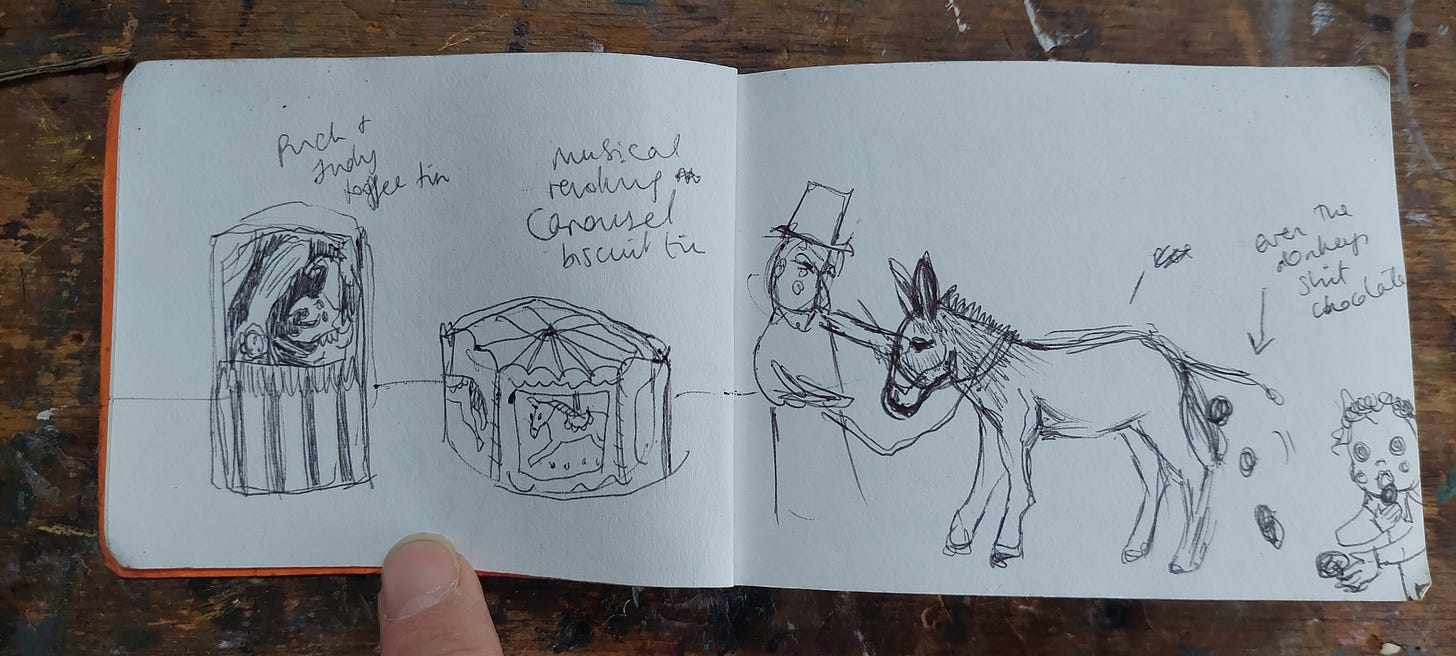 Punch &
Judy
toffee tin
Musical
revolving
Carousel
biscuit tin
even The
donkeys
shit
chocolate